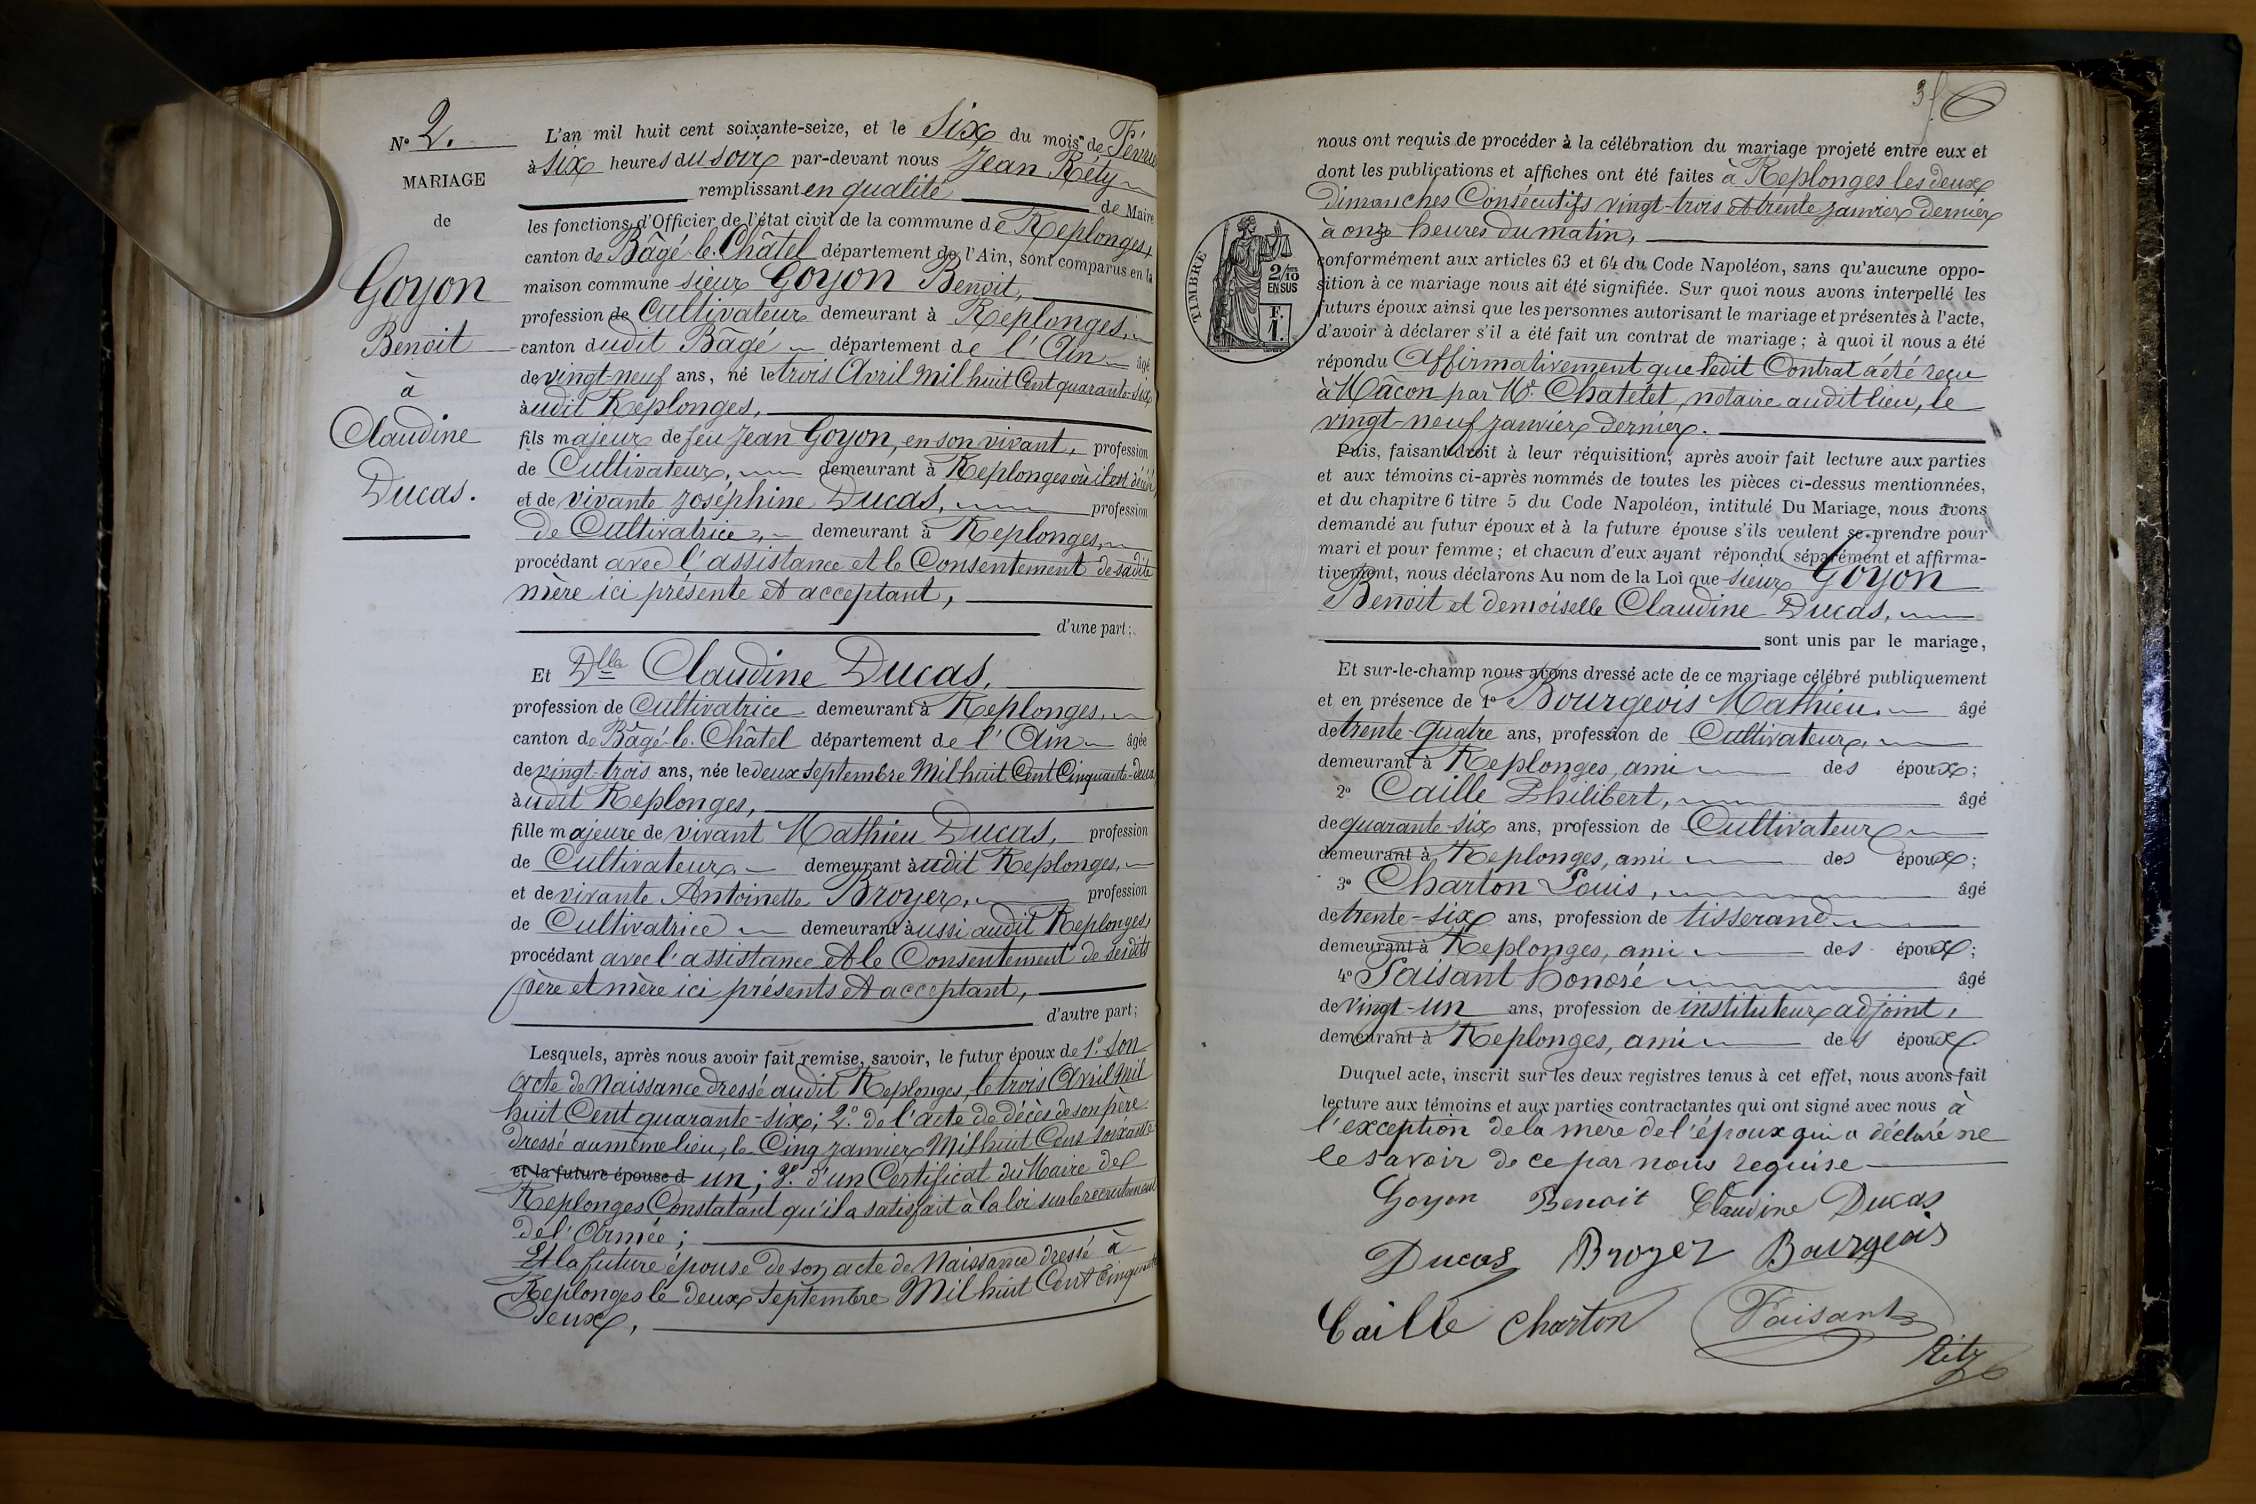 Nº 2.
MARIAGE
de
Goyon
Benoit
à
Claudine
Ducas.
L'an mil huit cent soixante-seize, et le Six du mois de Févri
à six heures du soir par-devant nous Jean Réty
remplissant en qualité de Maire
les fonctions d'Officier de l'état civil de la commune de Replonges,
canton de Bâgé-le-Châtel département de l'Ain, sont comparus en la
maison commune sieur Goyon Benoit,
profession de Cultivateur demeurant à Replonges,
canton dudit Bâgé département de l'Ain âgé
de vingt-neuf ans, né le trois Avril Mil huit Cent quarante-six
audit Replonges,
fils majeur de feu Jean Goyon, en son vivant, profession
de Cultivateur, demeurant à Replonges où il est décédé
et de vivante Joséphine Ducas, profession
de Cultivatrice, demeurant à Replonges,
procédant avec l'assistance et le Consentement de sadite
mère ici présente et acceptant,
d'une part;
Et Dlle Claudine Ducas,
profession de Cultivatrice demeurant à Replonges,
canton de Bâgé-le-Châtel département de l'Ain âgée
de vingt-trois ans, née le deux Septembre Mil huit Cent Cinquante-deux
audit Replonges,
fille majeure de vivant Mathieu Ducas, profession
de Cultivateur, demeurant audit Replonges,
et de vivante Antoinette Broyer, profession
de Cultivatrice demeurant aussi audit Replonges,
procédant avec l'assistance et le Consentement de sesdits
père et mère ici présents et acceptant,
d'autre part;
Lesquels, après nous avoir fait remise, savoir, le futur époux de 1º son
acte de Naissance dressé audit Replonges, le trois Avril mil
huit Cent quarante-six; 2º de l'acte de décès de son père
dressé au même lieu, le Cinq Janvier Mil huit Cent soixante
et la future épouse d un; 3º d'un Certificat du Maire de
Replonges Constatant qu'il a satisfait à la loi sur le recrutement
de l'Armée;
Et la future épouse de son acte de Naissance dressé à
Replonges le deux Septembre Mil huit Cent Cinquante
deux,
3
nous ont requis de procéder à la célébration du mariage projeté entre eux et
dont les publications et affiches ont été faites à Replonges les deux
dimanches Consécutifs vingt-trois et trente Janvier dernier
à onze heures du matin,
conformément aux articles 63 et 64 du Code Napoléon, sans qu'aucune oppo-
sition à ce mariage nous ait été signifiée. Sur quoi nous avons interpellé les
futurs époux ainsi que les personnes autorisant le mariage et présentes à l'acte,
d'avoir à déclarer s'il a été fait un contrat de mariage; à quoi il nous a été
répondu Affirmativement que ledit Contrat a été reçu
à Mâcon par Me Chatelet, notaire audit lieu, le
vingt-neuf Janvier dernier.
TIMBRE
2/10
EN SUS
F.
1.
Puis, faisant droit à leur réquisition, après avoir fait lecture aux parties
et aux témoins ci-après nommés de toutes les pièces ci-dessus mentionnées,
et du chapitre 6 titre 5 du Code Napoléon, intitulé Du Mariage, nous avons
demandé au futur époux et à la future épouse s'ils veulent se prendre pour
mari et pour femme; et chacun d'eux ayant répondu séparément et affirma-
tivement, nous déclarons Au nom de la Loi que sieur Goyon
Benoit et demoiselle Claudine Ducas,
sont unis par le mariage,
Et sur-le-champ nous avons dressé acte de ce mariage célébré publiquement
et en présence de 1º Bourgeois Mathieu, âgé
de trente-quatre ans, profession de Cultivateur,
demeurant à Replonges, ami des époux;
2º Caille Philibert, âgé
de quarante-six ans, profession de Cultivateur
demeurant à Replonges, ami des époux;
3º Charton Louis, âgé
de trente-six ans, profession de tisserand
demeurant à Replonges, ami des époux;
4º Faisant Honoré âgé
de vingt-un ans, profession de instituteur adjoint,
demeurant à Replonges, ami des époux
Duquel acte, inscrit sur les deux registres tenus à cet effet, nous avons fait
lecture aux témoins et aux parties contractantes qui ont signé avec nous à
l'exception de la mère de l'époux qui a déclaré ne
le savoir de ce par nous requise
Goyon Benoit Claudine Ducas
Ducas Broyer Bourgeois
Caille Charton Faisant
Réty